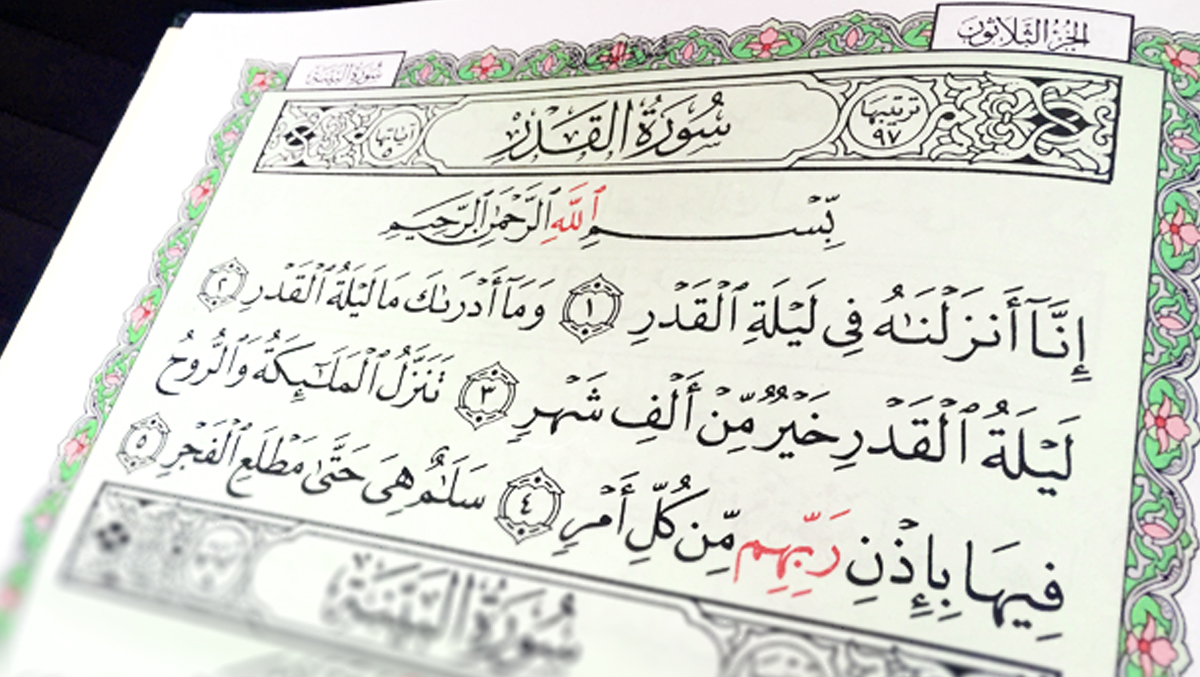 الجزء الثلاثون
سورة البينة
ترتيبها ٩٧
سُورَةُ القَدْرِ
آياتها ٥
بِّسْمِ ٱللَّهِ ٱلرَّحْمَٰنِ ٱلرَّحِيمِ
إِنَّآ أَنزَلْنَٰهُ فِى لَيْلَةِ ٱلْقَدْرِ ١ وَمَآ أَدْرَىٰكَ مَا لَيْلَةُ ٱلْقَدْرِ ٢
لَيْلَةُ ٱلْقَدْرِ خَيْرٌ مِّنْ أَلْفِ شَهْرٍ ٣ تَنَزَّلُ ٱلْمَلَٰٓئِكَةُ وَٱلرُّوحُ
فِيهَا بِإِذْنِ رَبِّهِم مِّن كُلِّ أَمْرٍ ٤ سَلَٰمٌ هِىَ حَتَّىٰ مَطْلَعِ ٱلْفَجْرِ ٥
سُورَةُ البَيِّنَةِ